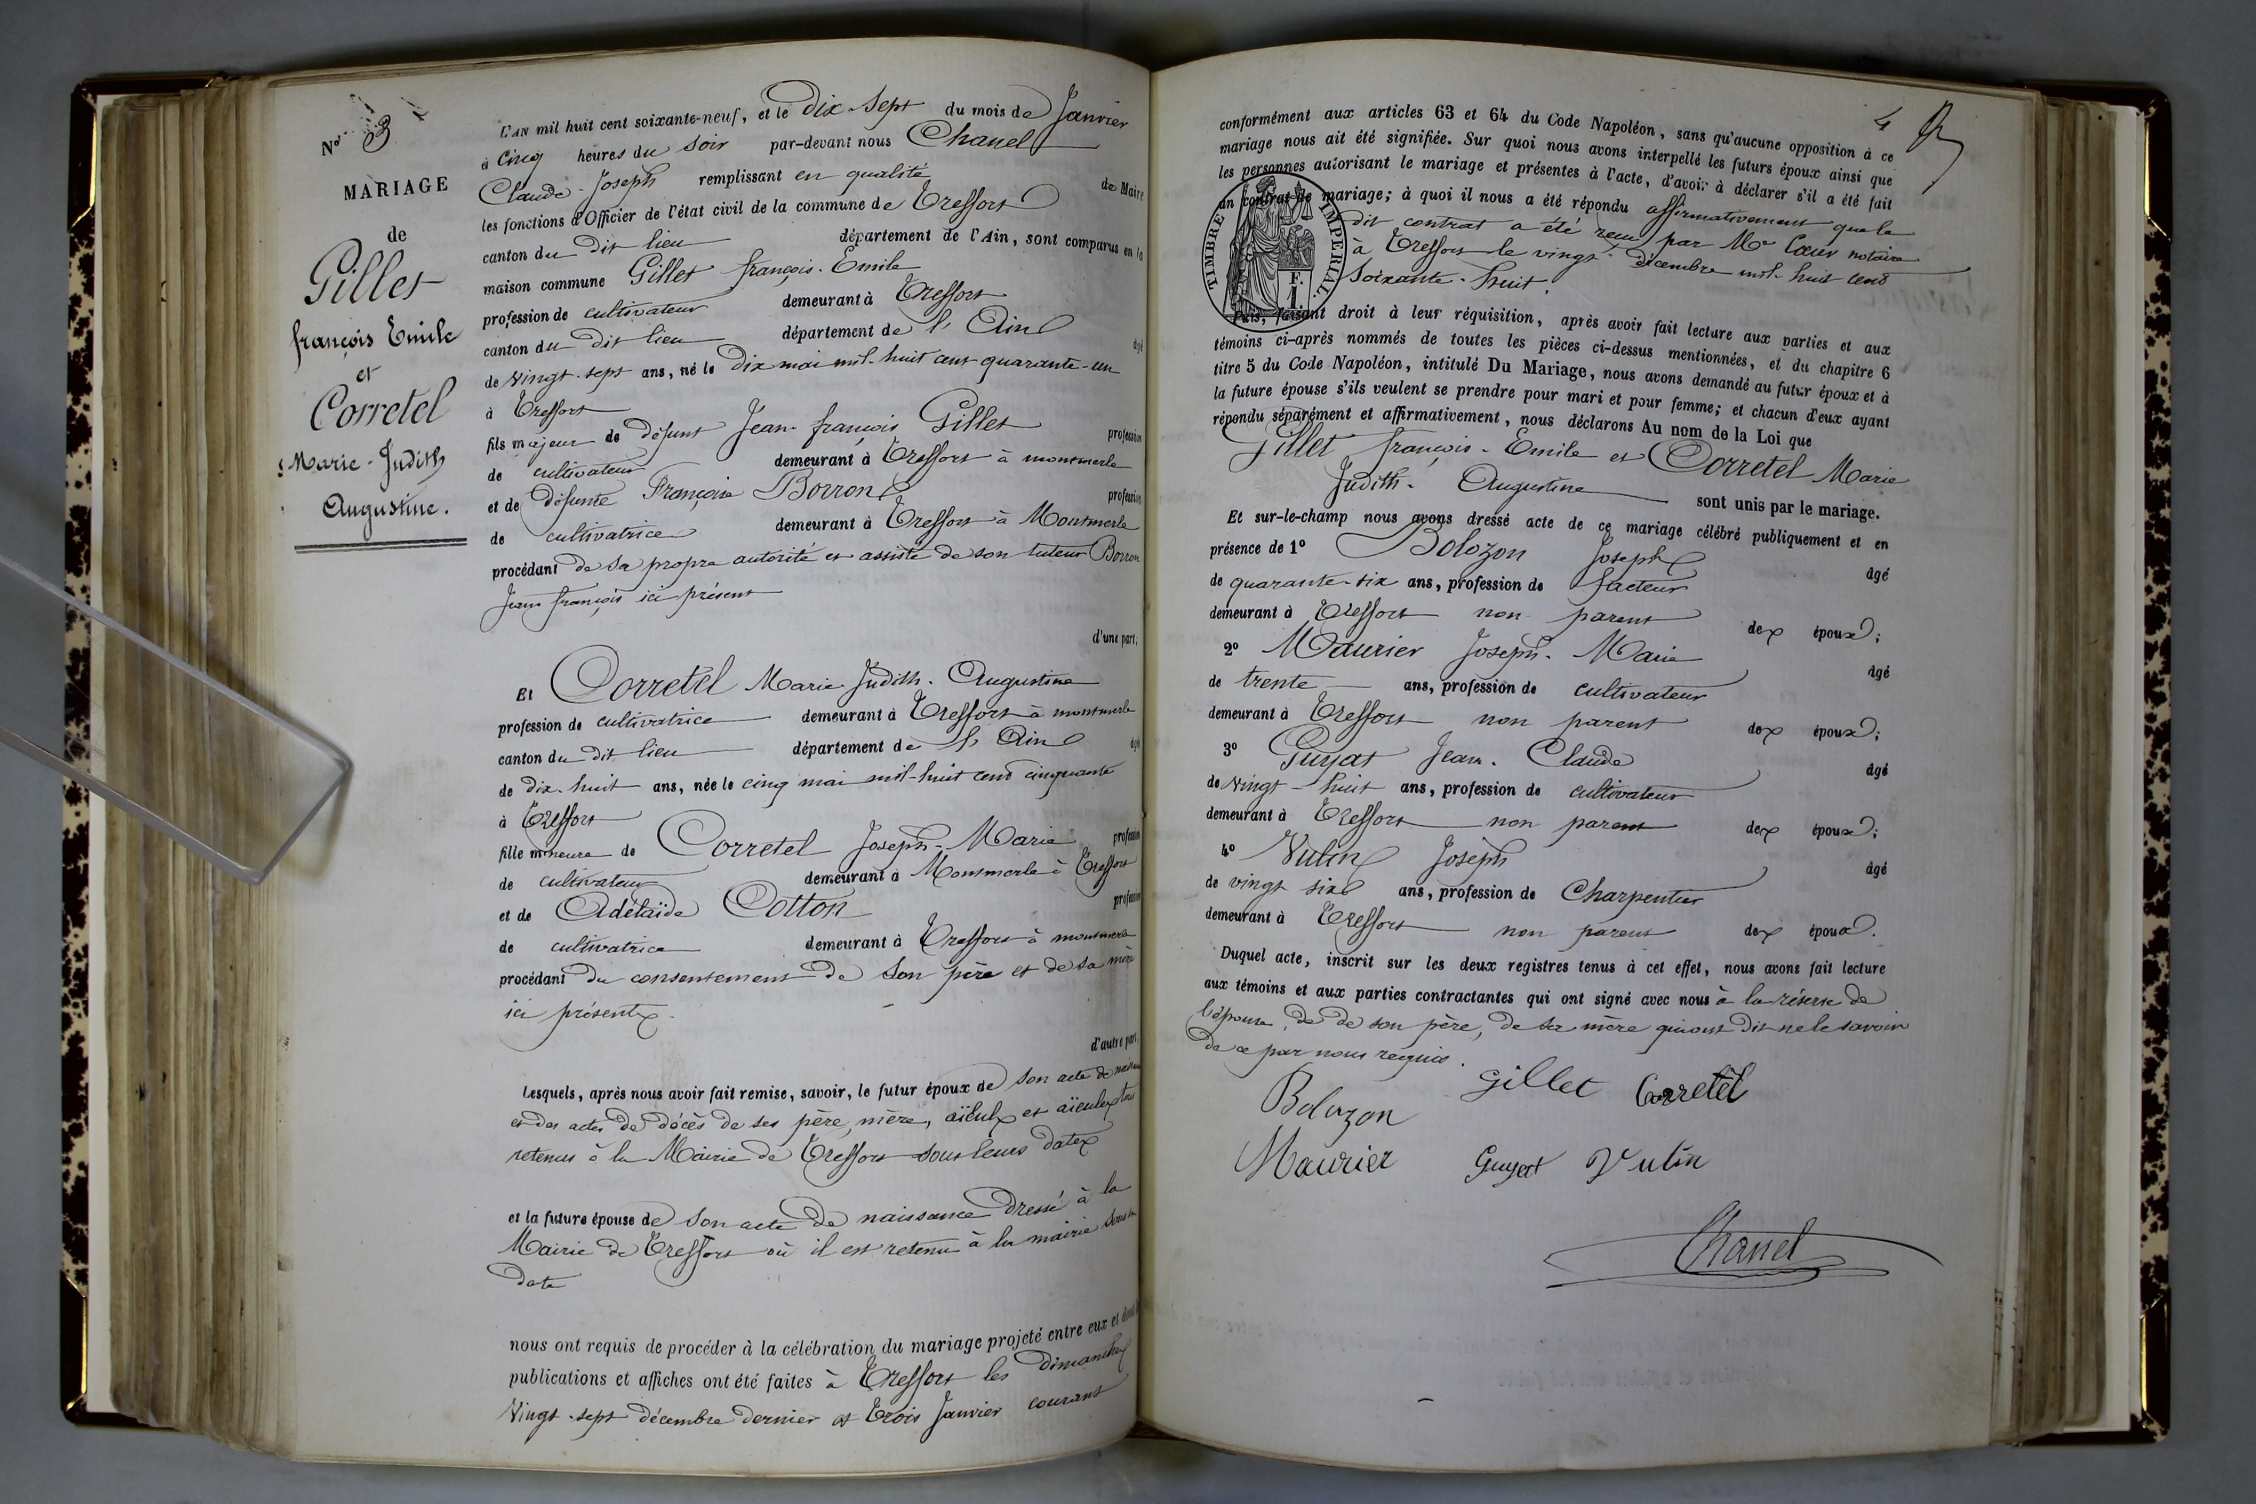 No 3
MARIAGE
de
Gillet
françois Emile
et
Corretel
Marie-Judith
Augustine.
L'AN mil huit cent soixante-neuf, et le Dix-Sept du mois de Janvier
à Cinq heures du soir par-devant nous Chanel
Claude-Joseph remplissant en qualité de Maire
les fonctions d'Officier de l'état civil de la commune de Treffort
canton du dit lieu département de l'Ain, sont comparus en la
maison commune Gillet françois-Emile
profession de cultivateur demeurant à Treffort
canton du dit lieu département de l'Ain âgé
de vingt-sept ans, né le Dix mai mil-huit cent quarante-un
à Treffort
fils majeur de défunt Jean-françois Gillet profession
de cultivateur demeurant à Treffort à montmerle
et de défunte Françoise Borron profession
de cultivatrice demeurant à Treffort à Montmerle
procédant de sa propre autorité et assisté de son tuteur Borron
Jean-françois ici présent
d'une part;
Et Corretel Marie Judith-Augustine
profession de cultivatrice demeurant à Treffort à montmerle
canton du dit lieu département de l'Ain âgé
de dix-huit ans, née le cinq mai mil-huit cent cinquante
à Treffort
fille mineure de Corretel Joseph-Marie profession
de cultivateur demeurant à Montmerle à Treffort
et de Adélaïde Cotton profession
de cultivatrice demeurant à Treffort à montmerle
procédant du consentement de son père et de sa mère
ici présents
d'autre part,
Lesquels, après nous avoir fait remise, savoir, le futur époux de son acte de naissance
et des actes de décès de ses père, mère, aïeuls et aïeules tous
retenus à la Mairie de Treffort sous leurs dates
et la future épouse de son acte de naissance dressé à la
Mairie de Treffort où il est retenu à la mairie sous sa
date
nous ont requis de procéder à la célébration du mariage projeté entre eux et dont les
publications et affiches ont été faites à Treffort les dimanches
Vingt-sept décembre dernier et trois Janvier courant
4
conformément aux articles 63 et 64 du Code Napoléon, sans qu'aucune opposition à ce
mariage nous ait été signifiée. Sur quoi nous avons interpellé les futurs époux ainsi que
les personnes autorisant le mariage et présentes à l'acte, d'avoir à déclarer s'il a été fait
un contrat de mariage; à quoi il nous a été répondu affirmativement que le
dit contrat a été reçu par Me Cœur notaire
à Treffort le vingt-décembre mil-huit cent
soixante-huit.
TIMBRE IMPERIAL.
F.
1.
Puis, faisant droit à leur réquisition, après avoir fait lecture aux parties et aux
témoins ci-après nommés de toutes les pièces ci-dessus mentionnées, et du chapitre 6
titre 5 du Code Napoléon, intitulé Du Mariage, nous avons demandé au futur époux et à
la future épouse s'ils veulent se prendre pour mari et pour femme; et chacun d'eux ayant
répondu séparément et affirmativement, nous déclarons Au nom de la Loi que
Gillet françois-Emile et Corretel Marie
Judith-Augustine sont unis par le mariage.
Et sur-le-champ nous avons dressé acte de ce mariage célébré publiquement et en
présence de 1º Bolozon Joseph âgé
de quarante-six ans, profession de facteur
demeurant à Treffort non parent des époux;
2º Maurier Joseph-Marie âgé
de trente ans, profession de cultivateur
demeurant à Treffort non parent des époux;
3º Guyat Jean-Claude âgé
de vingt-huit ans, profession de cultivateur
demeurant à Treffort non parent des époux;
4º Vulin Joseph âgé
de vingt six ans, profession de Charpentier
demeurant à Treffort non parent des époux.
Duquel acte, inscrit sur les deux registres tenus à cet effet, nous avons fait lecture
aux témoins et aux parties contractantes qui ont signé avec nous à la réserve de
l'épouse, de de son père, de sa mère qui ont dit ne le savoir
de ce par nous requis.
Gillet Corretel
Bolozon
Maurier Guyat Vulin
Chanel